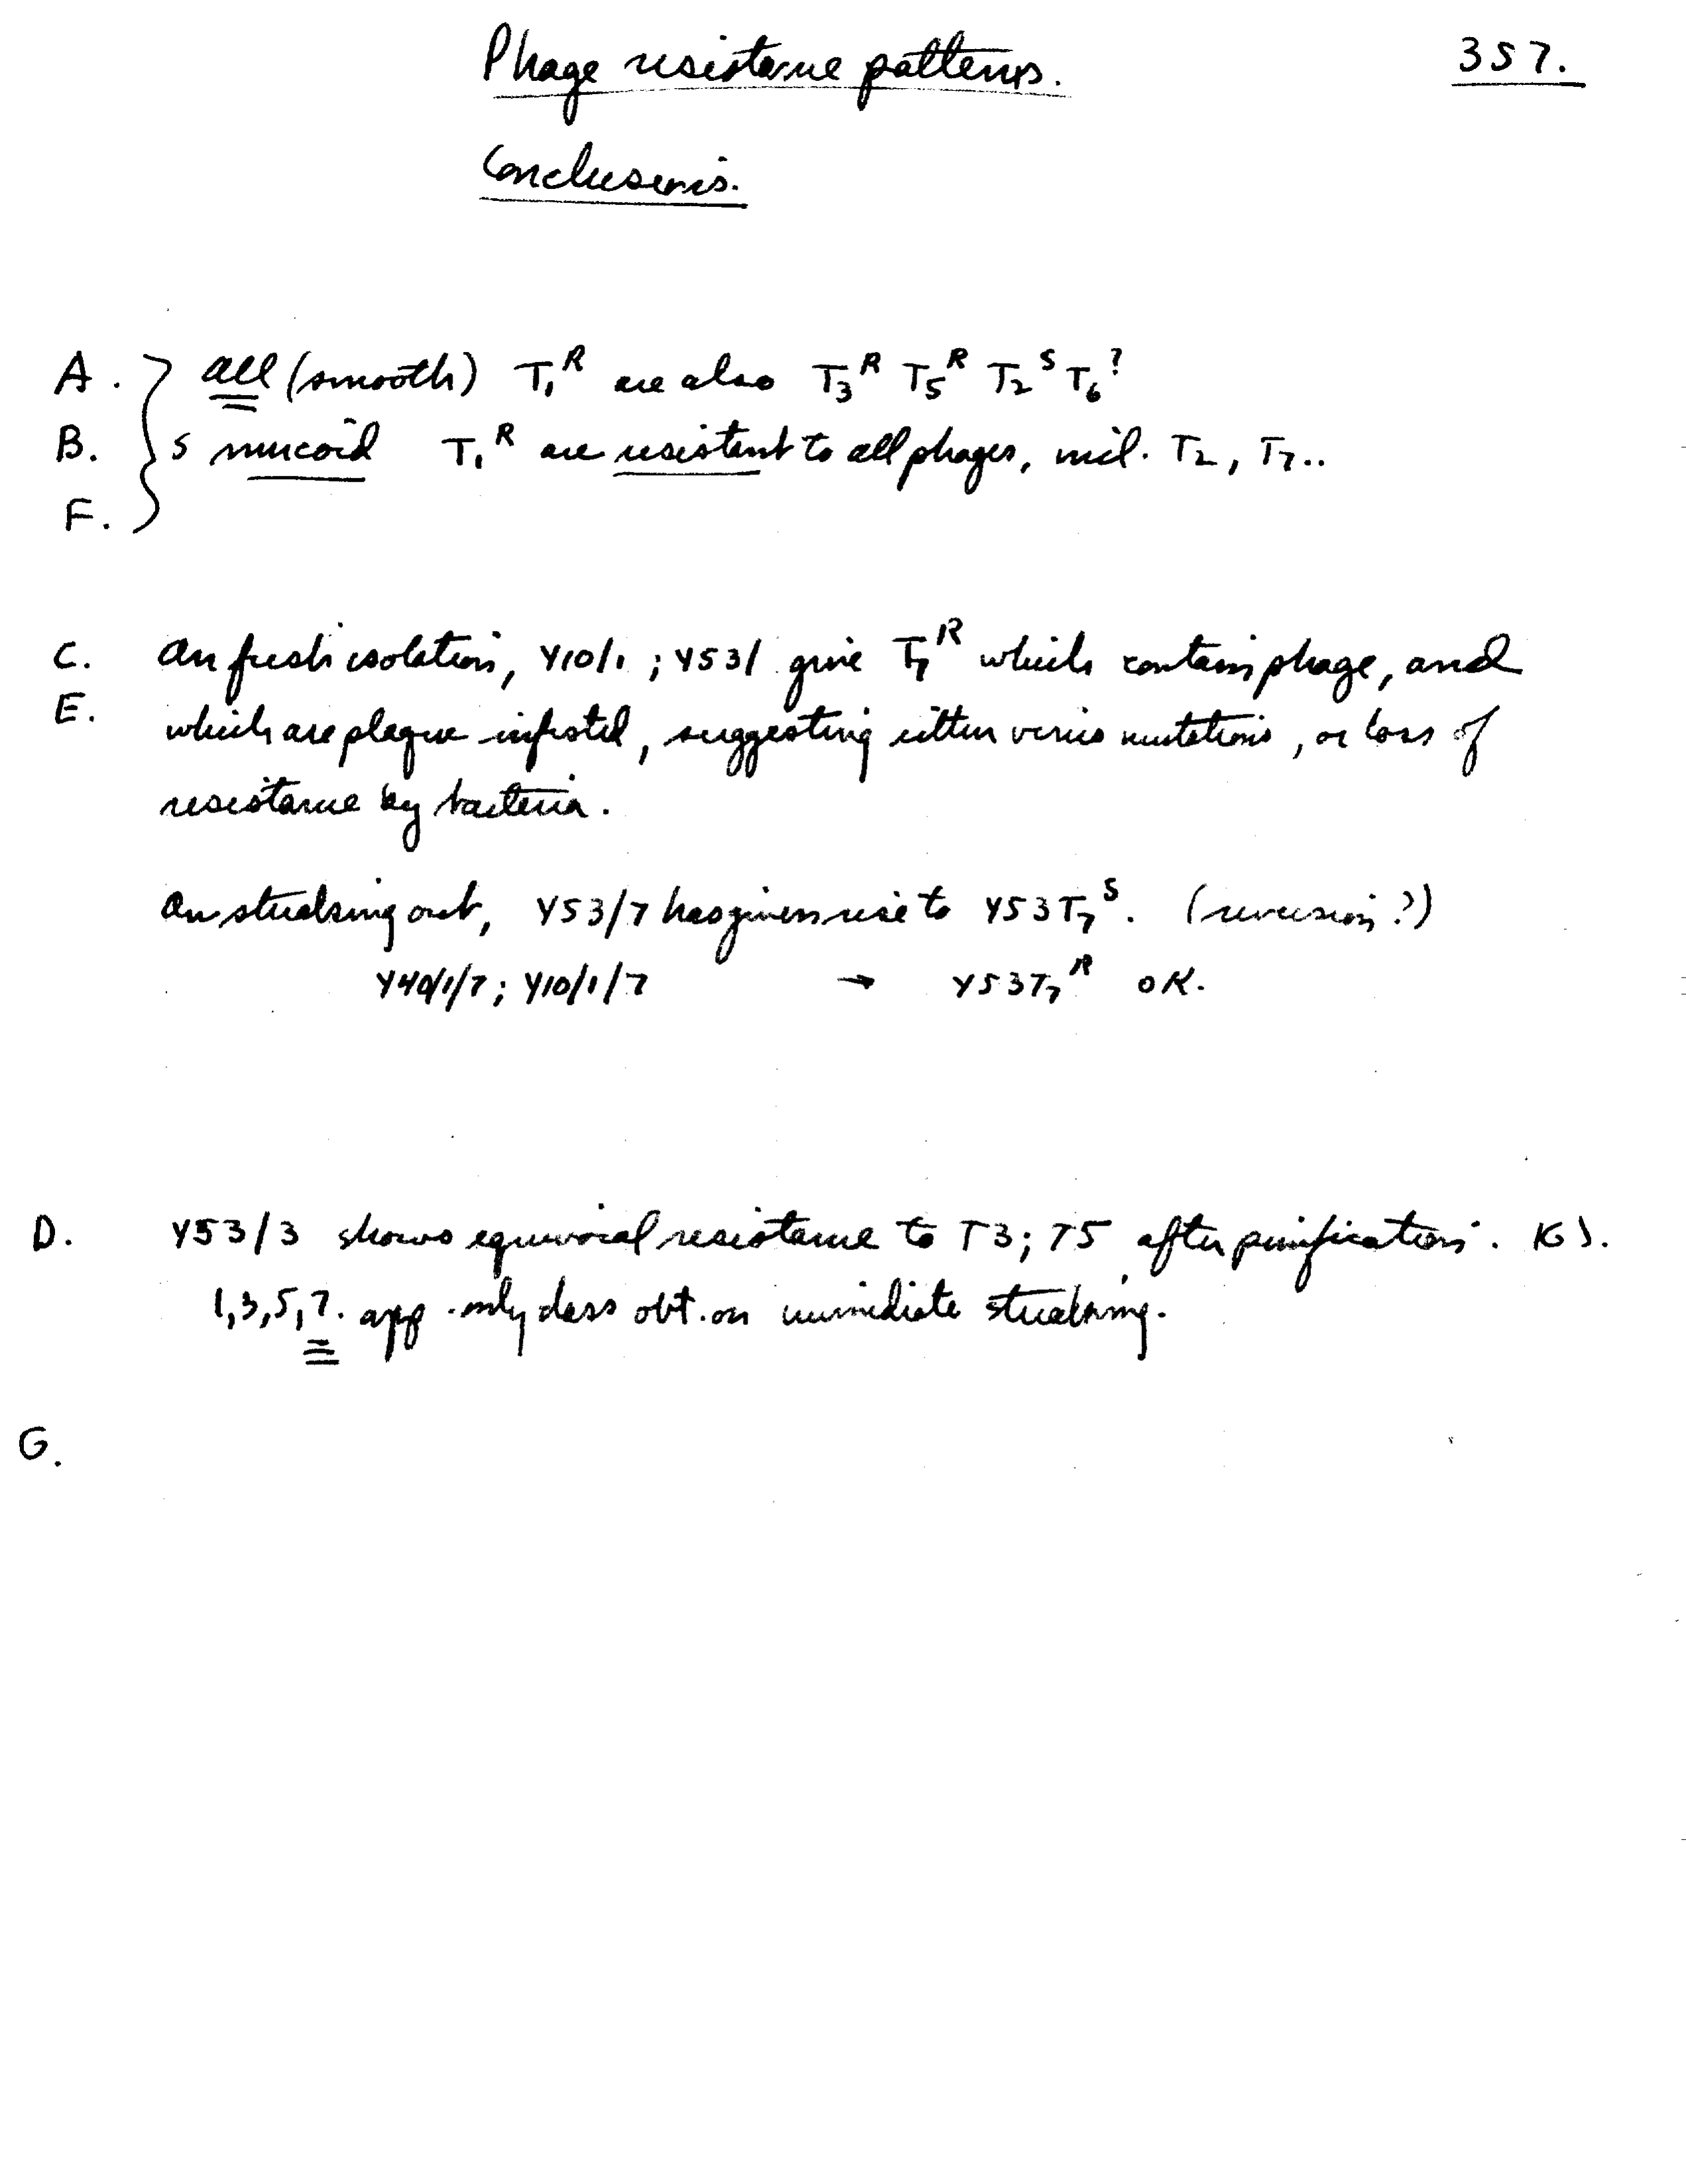 Phage resistance patterns.
357.
Conclusions.
A. All (smooth) T₁ᴿ are also T₃ᴿ T₅ᴿ T₂ˢ T₆?
B. 5 mucoid T₁ᴿ are resistant to all phages, incl. T₂, T₇..
F.
C. On fresh isolation, Y10/1 ; Y53/ give T₇ᴿ which contain phage, and
E. which are plaque infested, suggesting either virus mutations, or loss of
resistance by bacteria.
On streaking out, Y53/7 has given rise to Y53T₇ˢ. (reversion?)
Y40/1/7; Y10/1/7 → Y53T₇ᴿ OK.
D. Y53/3 shows equivocal resistance to T3; T5 after purification.
1,3,5,7. app. only class obt. on immediate streaking.
G.